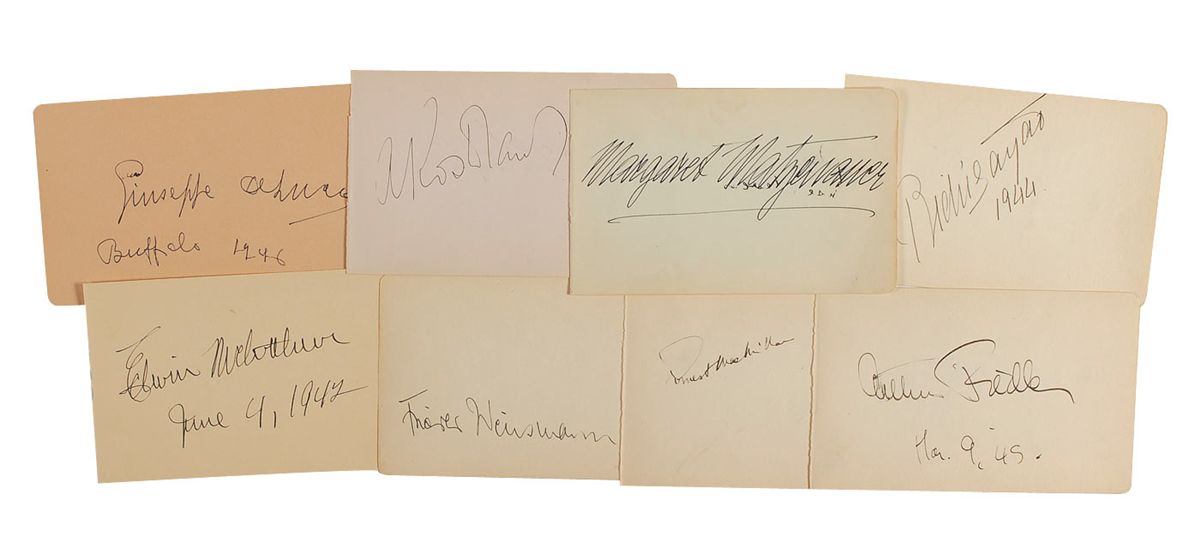 Giuseppe de Luca
Buffalo 1946
A Kostelanetz
Margaret Matzenauer
Bidú Sayão
1944
Edwin McArthur
June 4, 1942
Frieder Weissmann
Ernest MacMillan
Arthur Fiedler
Mar. 9, '45.